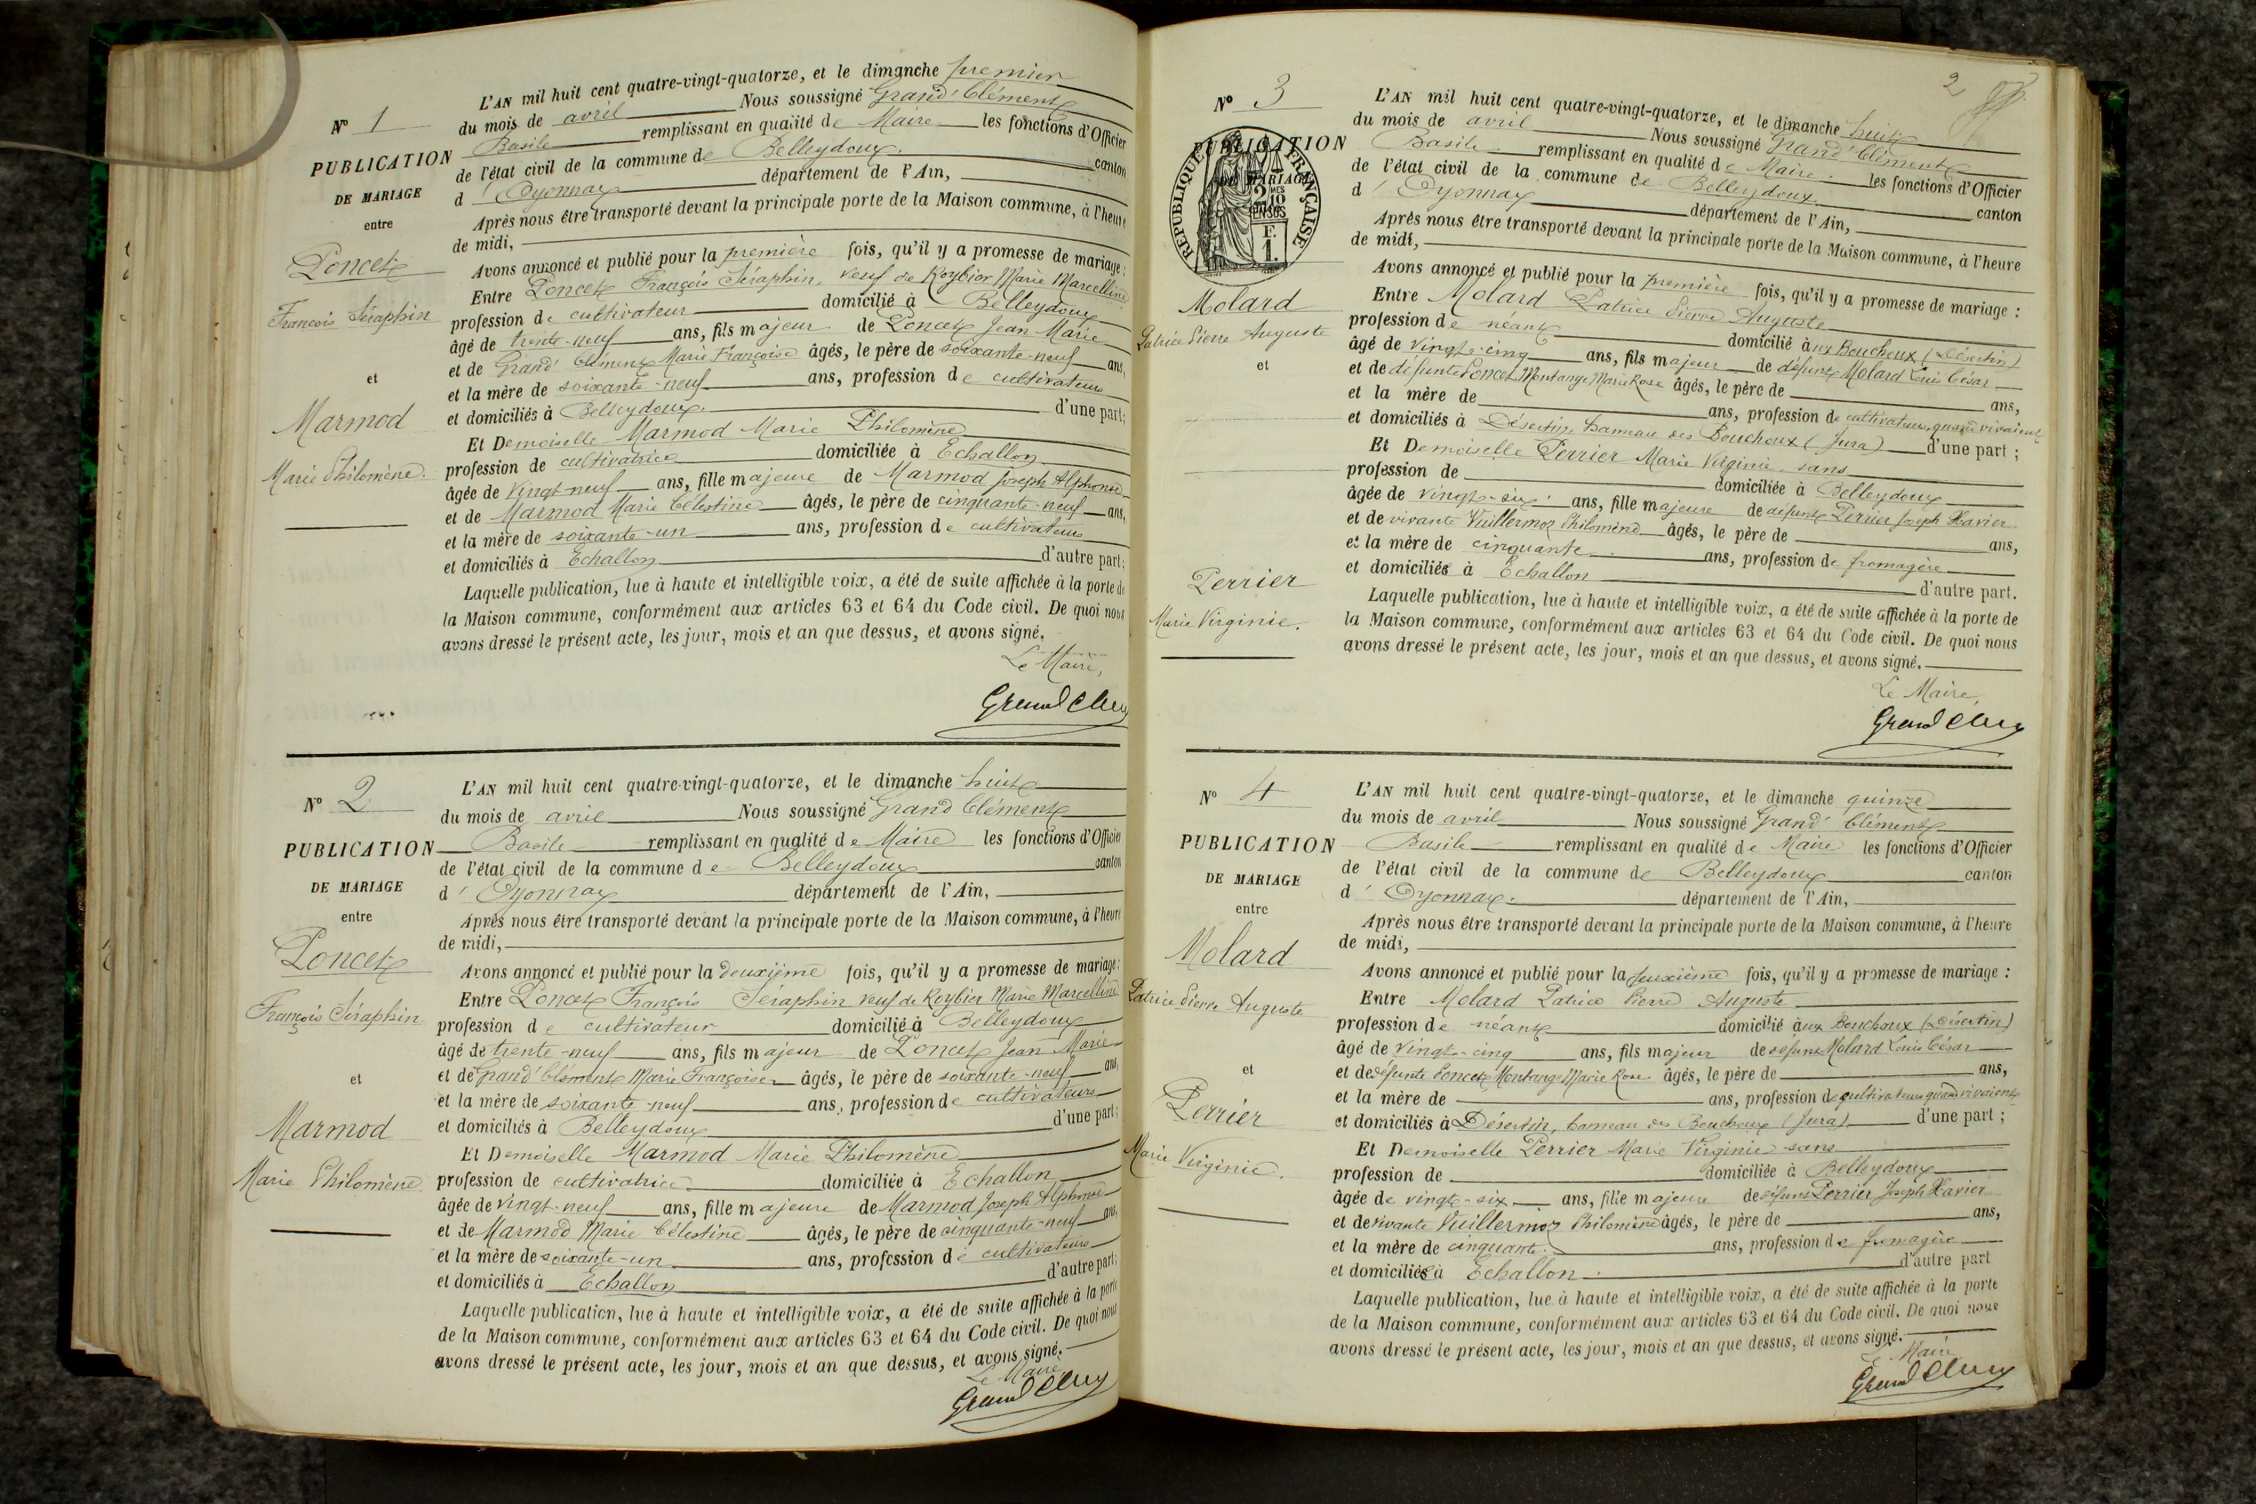 L'AN mil huit cent quatre-vingt-quatorze, et le dimanche premier
N° 1
du mois de avril Nous soussigné Grand' Clément
Basile remplissant en qualité de Maire les fonctions d'Officier
PUBLICATION
de l'état civil de la commune de Belleydoux canton
DE MARIAGE
d' Oyonnax département de l'Ain,
entre
Après nous être transporté devant la principale porte de la Maison commune, à l'heure
de midi,
Poncet
François Séraphin
Avons annoncé et publié pour la première fois, qu'il y a promesse de mariage :
Entre Poncet François Séraphin, veuf de Roybier Marie Marcelline
profession de cultivateur domicilié à Belleydoux
âgé de trente-neuf ans, fils majeur de Poncet Jean Marie
et de Grand' Clément Marie Françoise âgés, le père de soixante-neuf ans,
et
et la mère de soixante-neuf ans, profession de cultivateurs
et domiciliés à Belleydoux. d'une part;
Marmod
Marie Philomène.
Et Demoiselle Marmod Marie Philomène
profession de cultivatrice domiciliée à Echallon
âgée de vingt-neuf ans, fille majeure de Marmod Joseph Alphonse
et de Marmod Marie Célestine âgés, le père de cinquante-neuf ans,
et la mère de soixante-un ans, profession de cultivateurs
et domiciliés à Echallon d'autre part;
Laquelle publication, lue à haute et intelligible voix, a été de suite affichée à la porte de
la Maison commune, conformément aux articles 63 et 64 du Code civil. De quoi nous
avons dressé le présent acte, les jour, mois et an que dessus, et avons signé.
Le Maire,
Grand Clém
L'AN mil huit cent quatre-vingt-quatorze, et le dimanche huit
N° 2
du mois de avril Nous soussigné Grand Clément
PUBLICATION
Basile remplissant en qualité de Maire les fonctions d'Officier
de l'état civil de la commune de Belleydoux canton
DE MARIAGE
d' Oyonnax département de l'Ain,
entre
Après nous être transporté devant la principale porte de la Maison commune, à l'heure
de midi,
Poncet
François Séraphin
Avons annoncé et publié pour la deuxième fois, qu'il y a promesse de mariage :
Entre Poncet François Séraphin veuf de Roybier Marie Marcelline
profession de cultivateur domicilié à Belleydoux
âgé de trente-neuf ans, fils majeur de Poncet Jean Marie
et de Grand' Clément Marie Françoise âgés, le père de soixante-neuf ans,
et
et la mère de soixante-neuf ans, profession de cultivateurs
et domiciliés à Belleydoux d'une part;
Marmod
Marie Philomène
Et Demoiselle Marmod Marie Philomène
profession de cultivatrice domiciliée à Echallon
âgée de vingt-neuf ans, fille majeure de Marmod Joseph Alphonse
et de Marmod Marie Célestine âgés, le père de cinquante-neuf ans,
et la mère de soixante-un ans, profession de cultivateurs
et domiciliés à Echallon d'autre part;
Laquelle publication, lue à haute et intelligible voix, a été de suite affichée à la porte
de la Maison commune, conformément aux articles 63 et 64 du Code civil. De quoi nous
avons dressé le présent acte, les jour, mois et an que dessus, et avons signé.
Le Maire
Grand Clém
2
L'AN mil huit cent quatre-vingt-quatorze, et le dimanche huit
N° 3
du mois de avril Nous soussigné Grand' Clément
PUBLICATION
Basile remplissant en qualité de Maire les fonctions d'Officier
de l'état civil de la commune de Belleydoux canton
DE MARIAGE
RÉPUBLIQUE FRANÇAISE
2 MES 10
EN SUS
F.
1.
d' Oyonnax département de l'Ain,
Après nous être transporté devant la principale porte de la Maison commune, à l'heure
de midi,
Molard
Patrice Pierre Auguste
et
Avons annoncé et publié pour la première fois, qu'il y a promesse de mariage :
Entre Molard Patrice Pierre Auguste
profession de néant domicilié aux Bouchoux (Désertin)
âgé de vingt-cinq ans, fils majeur de défunt Molard Louis César
et de défunte Poncet Montange Marie Rose âgés, le père de ans,
et la mère de ans, profession de cultivateurs quand vivaient
et domiciliés à Désertin hameau des Bouchoux (Jura) d'une part;
Et Demoiselle Perrier Marie Virginie sans
profession de domiciliée à Belleydoux
âgée de vingt-six ans, fille majeure de défunt Perrier Joseph Xavier
et de vivante Vuillermoz Philomène âgés, le père de ans,
et la mère de cinquante ans, profession de fromagère
Perrier
Marie Virginie.
et domiciliés à Echallon d'autre part.
Laquelle publication, lue à haute et intelligible voix, a été de suite affichée à la porte de
la Maison commune, conformément aux articles 63 et 64 du Code civil. De quoi nous
avons dressé le présent acte, les jour, mois et an que dessus, et avons signé.
Le Maire
Grand Clém
L'AN mil huit cent quatre-vingt-quatorze, et le dimanche quinze
N° 4
du mois de avril Nous soussigné Grand' Clément
PUBLICATION
Basile remplissant en qualité de Maire les fonctions d'Officier
de l'état civil de la commune de Belleydoux canton
DE MARIAGE
d' Oyonnax. département de l'Ain,
entre
Après nous être transporté devant la principale porte de la Maison commune, à l'heure
de midi,
Molard
Patrice Pierre Auguste
Avons annoncé et publié pour la deuxième fois, qu'il y a promesse de mariage :
Entre Molard Patrice Pierre Auguste
profession de néant domicilié aux Bouchoux (Désertin)
âgé de vingt-cinq ans, fils majeur de défunt Molard Louis César
et
et de défunte Poncet Montange Marie Rose âgés, le père de ans,
et la mère de ans, profession de cultivateurs quand vivaient
et domiciliés à Désertin, hameau des Bouchoux (Jura) d'une part;
Perrier
Marie Virginie.
Et Demoiselle Perrier Marie Virginie sans
profession de domiciliée à Belleydoux
âgée de vingt-six ans, fille majeure de défunt Perrier Joseph Xavier
et de vivante Vuillermoz Philomène âgés, le père de ans,
et la mère de cinquante. ans, profession de fromagère
et domiciliés à Echallon. d'autre part
Laquelle publication, lue à haute et intelligible voix, a été de suite affichée à la porte
de la Maison commune, conformément aux articles 63 et 64 du Code civil. De quoi nous
avons dressé le présent acte, les jour, mois et an que dessus, et avons signé.
Le Maire
Grand Clém